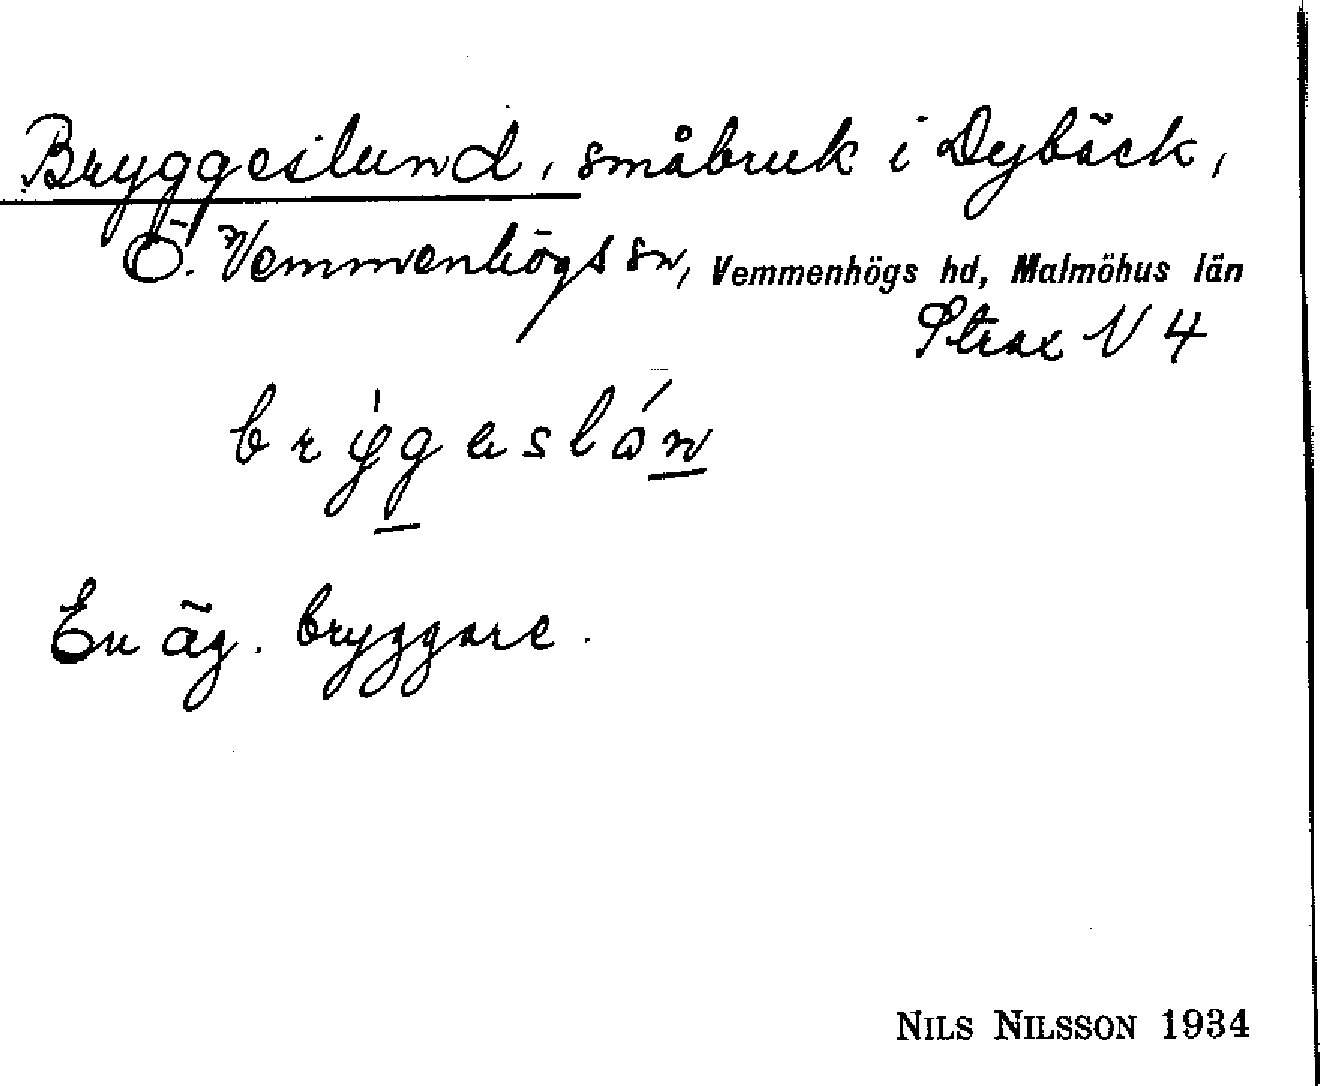 Bryggeslund, småbruk i Dybäck,
Ö. Vemmenhögs sn, Vemmenhögs hd, Malmöhus län
Strax V 4
En äg. bryggare.
NILS NILSSON 1934